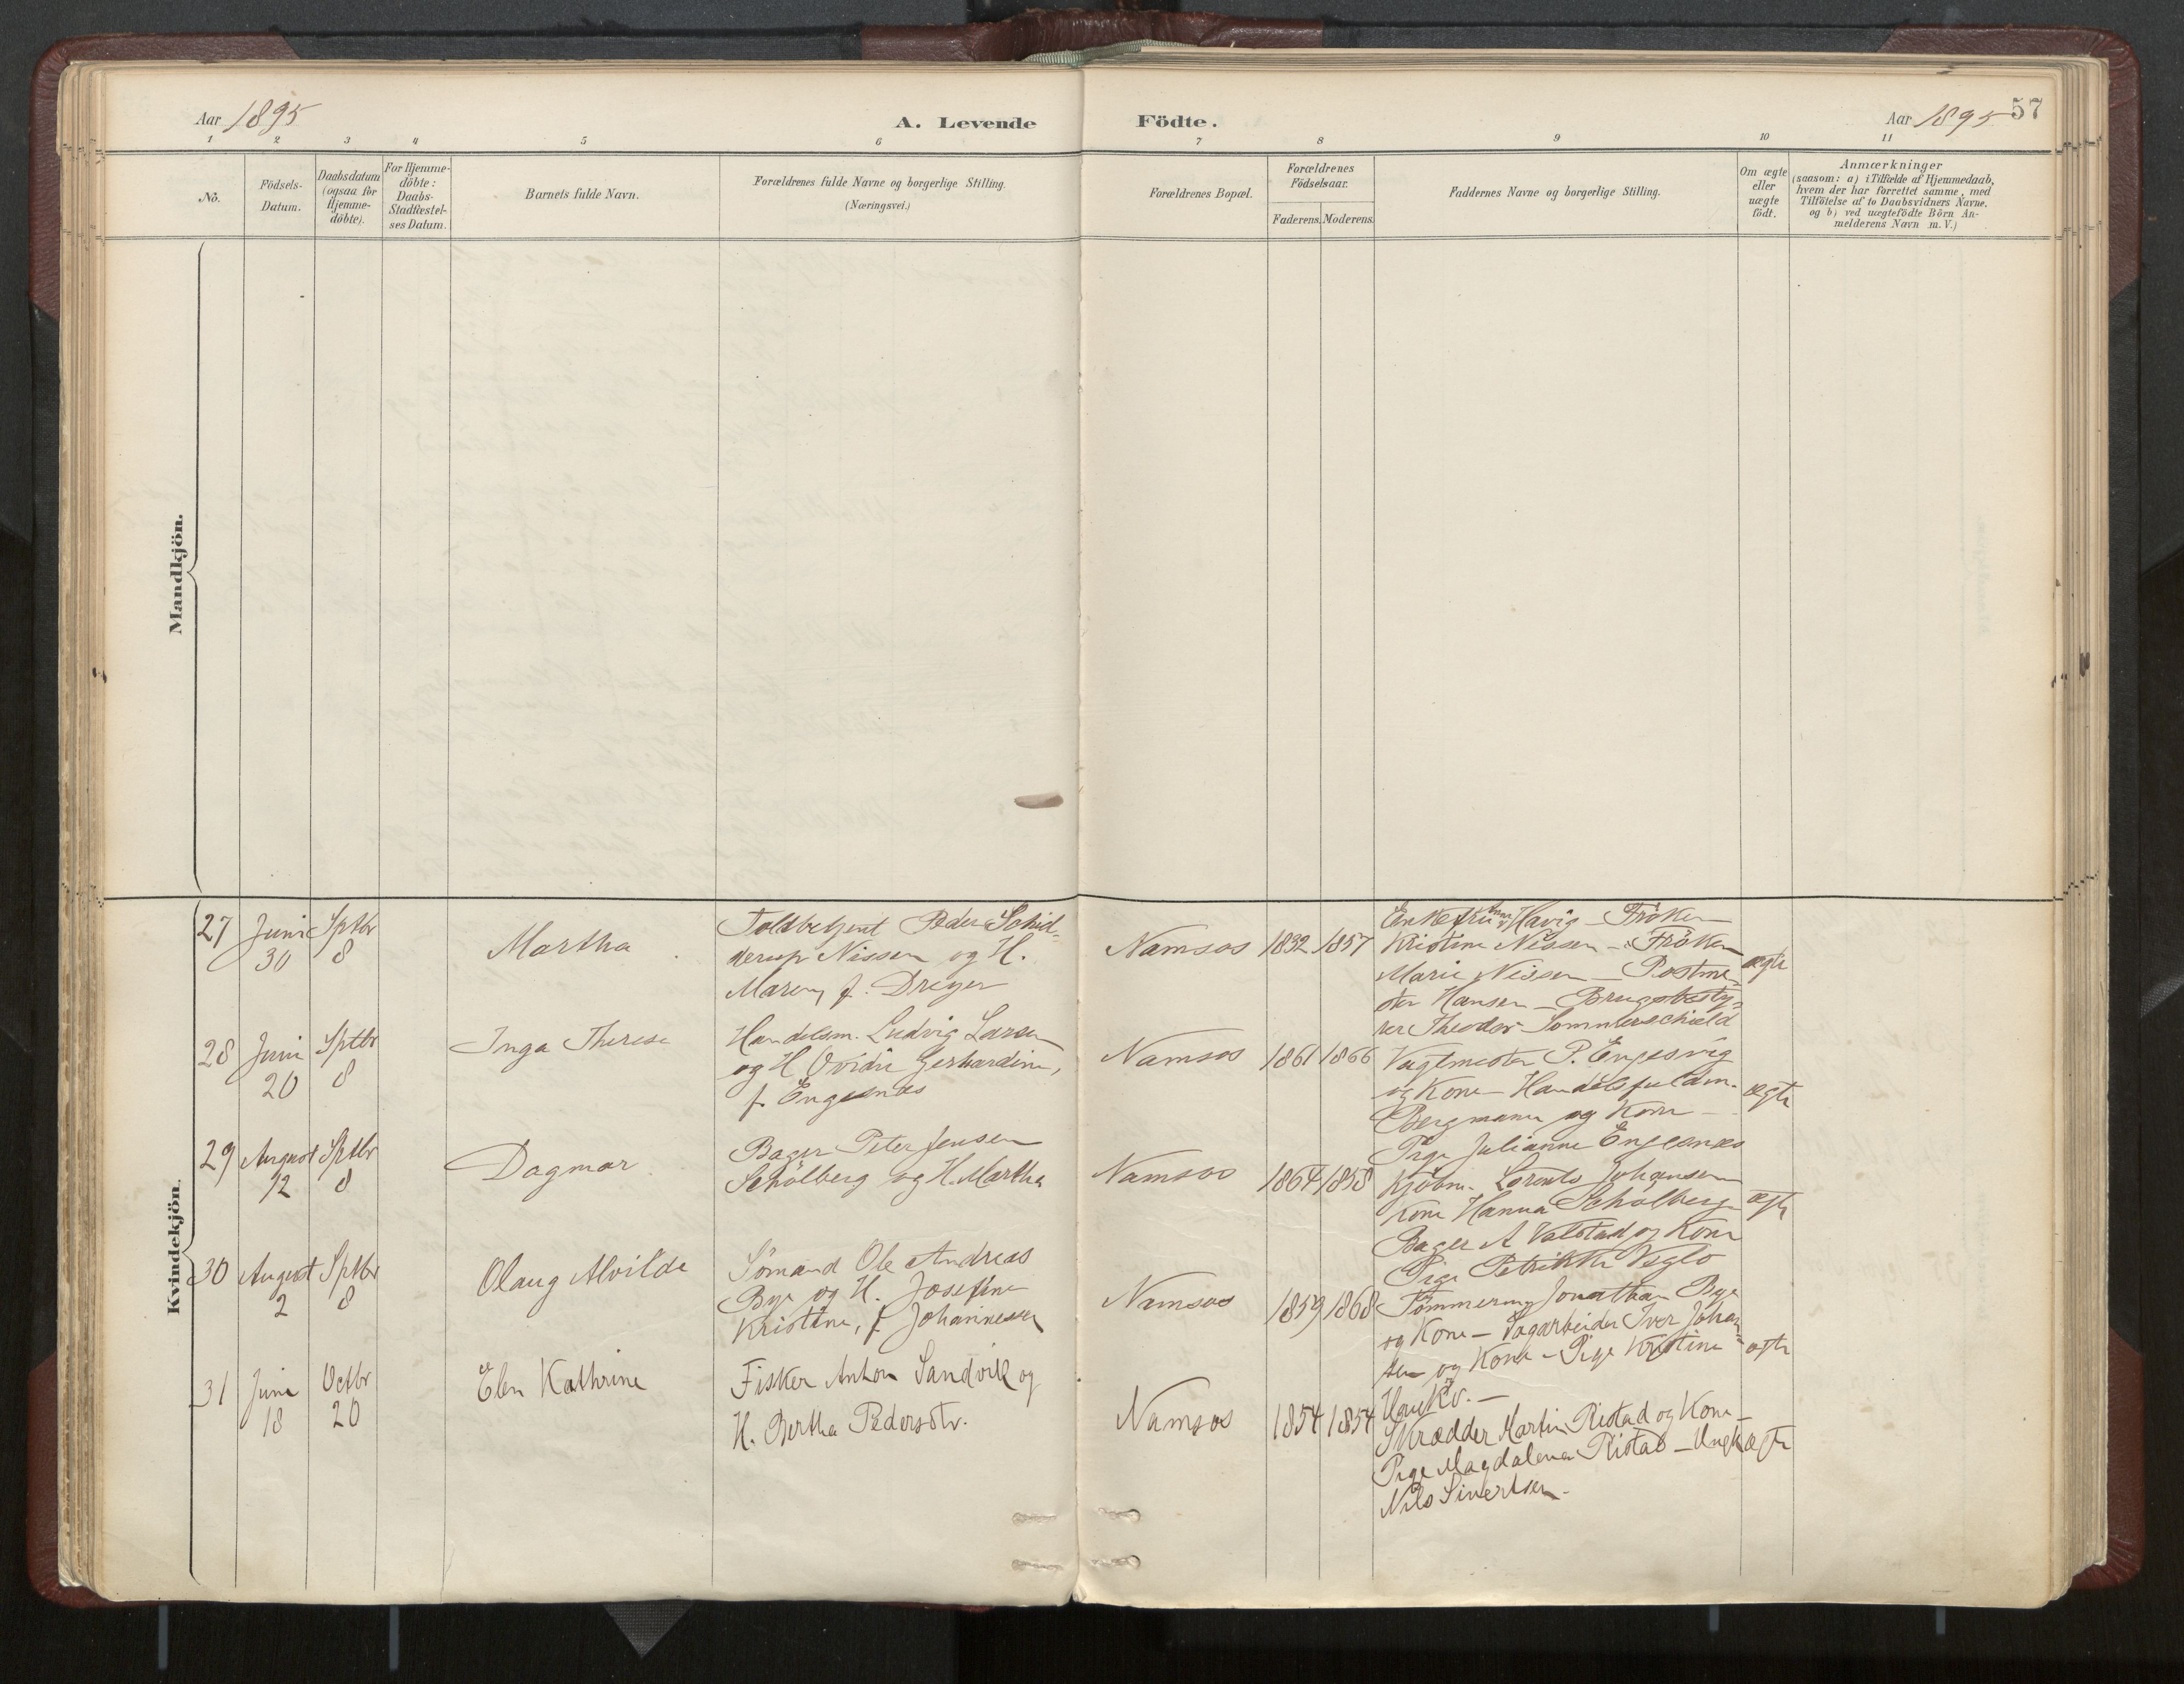 Aar 1895
A. Levende
Födte.
Aar 1895
57
1 2 3 4 5 6 7 8 9 10 11
No.
Födsels-
Datum.
Daabsdatum
(ogsaa for
Hjemme-
döbte).
For Hjemme-
döbte:
Daabs-
Stadfæstel-
ses Datum.
Barnets fulde Navn.
Forældrenes fulde Navne og borgerlige Stilling.
(Næringsvei.)
Forældrenes Bopæl.
Forældrenes
Födselsaar.
Faderens. Moderens.
Faddernes Navne og borgerlige Stilling.
Om ægte
eller
uægte
födt.
Anmærkninger
(saasom: a) i Tilfælde af Hjemmedaab,
hvem der har forrettet samme, med
Tilföielse af to Daabsvidners Navne.
og b) ved uægtefödte Börn An-
melderens Navn m. V.)
Mandkjön.
Kvindekjön.
27
Juni
30
Sptbr
8
Martha
Toldbetjent Peder Schid-
derup Nissen og H.
Maren, f. Dreyer
Namsos
1832
1857
Enkefru Anna Havig - Fröken
Kristine Nissen - Fröken
Marie Nissen - Postme-
ster Hansen - Brugsbesty-
rer Theodor Sommerschield
ægte
28
Juni
20
Sptbr
8
Inga Therese
Handelsm. Ludvig Larsen
og H. Ovidie Gerhardine,
f. Engesnes
Namsos
1861
1866
Vagtmester P. Engesvig
og Kone - Handelsfuldm.
Bergmann og Kone -
Pige Julianne Engesnes
ægte
29
August
12
Sptbr
8
Dagmar
Bager Peter Jensen
Schölberg og H. Martha
Namsos
1864
1858
Kjöbm. Lorents Johansen
Kone Hanna Schölberg
Bager A Valstad og Kone
Pige Petrikke Veglo
ægte
30
August
2
Sptbr
8
Olaug Alvilde
Sömand Ole Andreas
Bye og H. Josefine
Kristine, f Johannesen
Namsos
1859
1868
Tömmerm Jonathan Bye
og Kone - Sagarbeider Iver Johan-
sen og Kone - Pige Kristine
ægte
31
Juni
18
Octbr
20
Elen Kathrine
Fisker Anton Sandvik og
H. Bertha Pedersdtr.
Namsos
1854
1854
Skrædder Martin Ristad og Kone -
Pige Magdalena Ristad - Ungk
Nils Sivertsen -
ægte